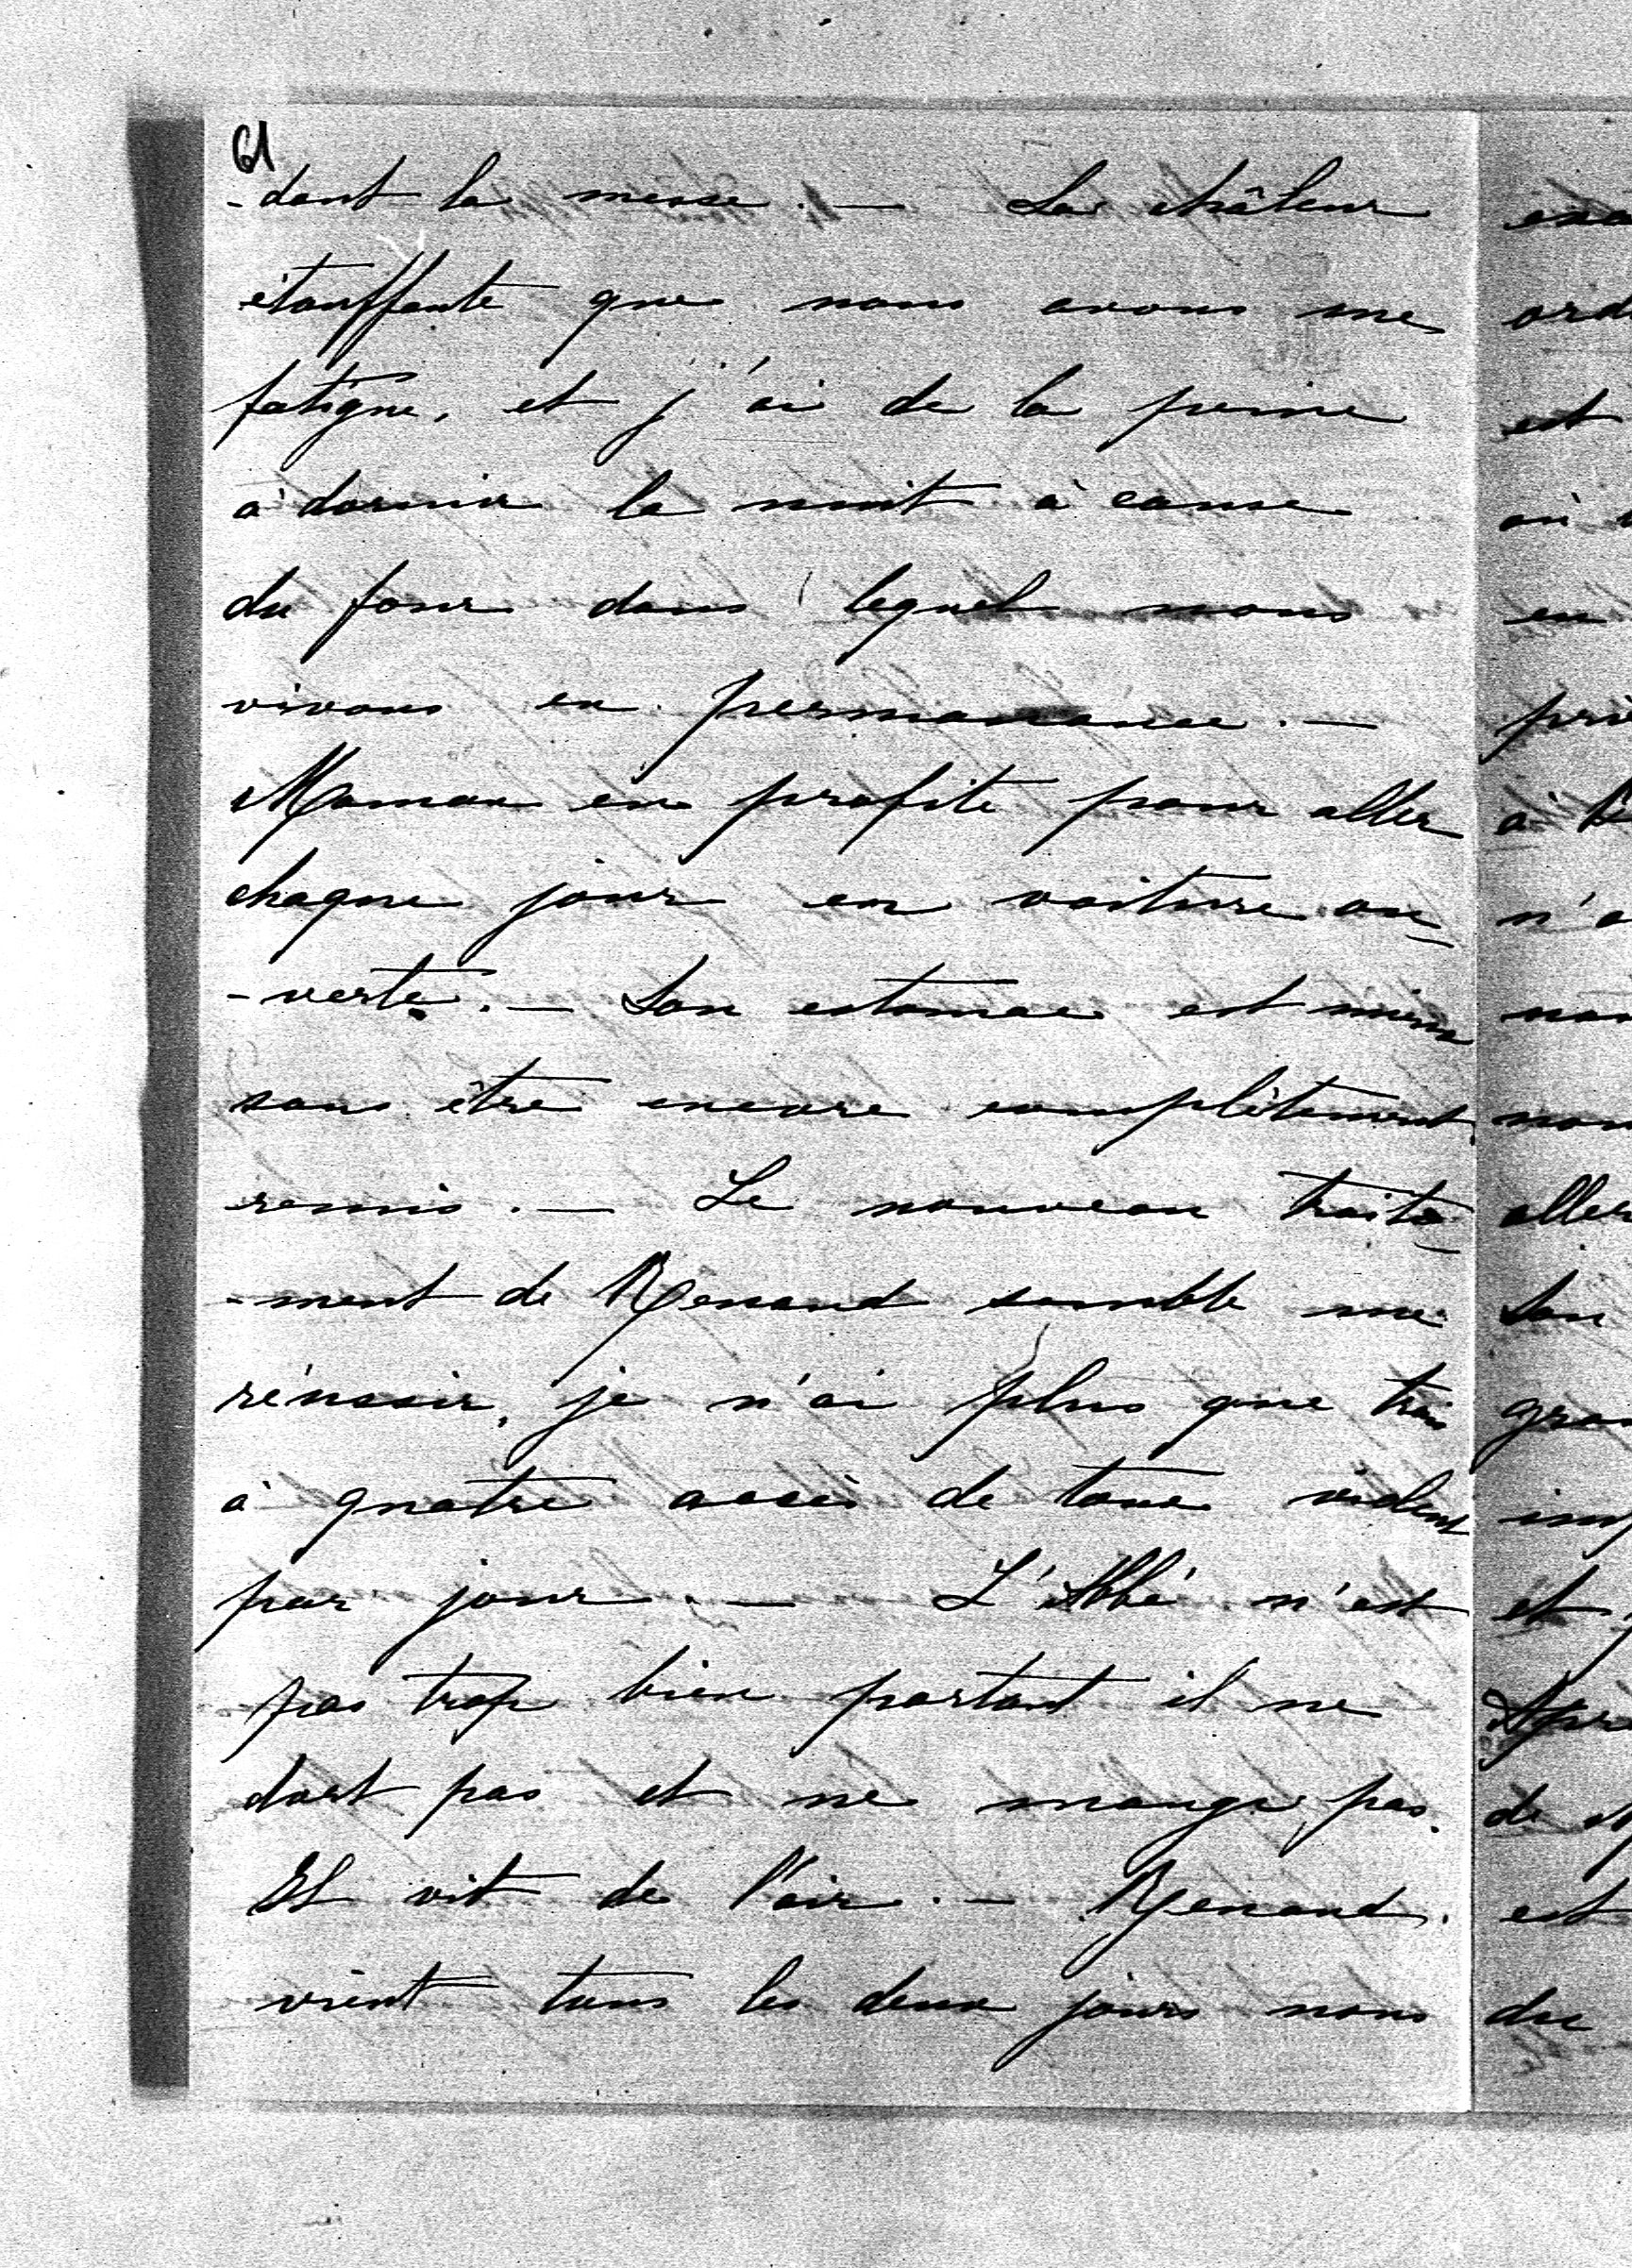 61
-dant la messe. — La châleur
étouffante que nous avons me
fatigue, et j'ai de la peine
à dormir la nuit à cause
du four dans lequel nous
vivons en permanence. —
Maman en profite pour aller
chaque jour en voiture ou-
-verte. — Son estomac est mieux
sans être encore complètement
remis. — Le nouveau traite-
-ment de Renaud semble me
réussir, je n'ai plus que trois
à quatre accès de toux violent
par jour. — L'Abbé n'est
pas trop bien portant il ne
dort pas et ne mange pas.
Il vit de l'air. — Renaud
vient tous les deux jours nous
ord
est
où
en
à
n'a
nou
aller
Son
et
de
est
du